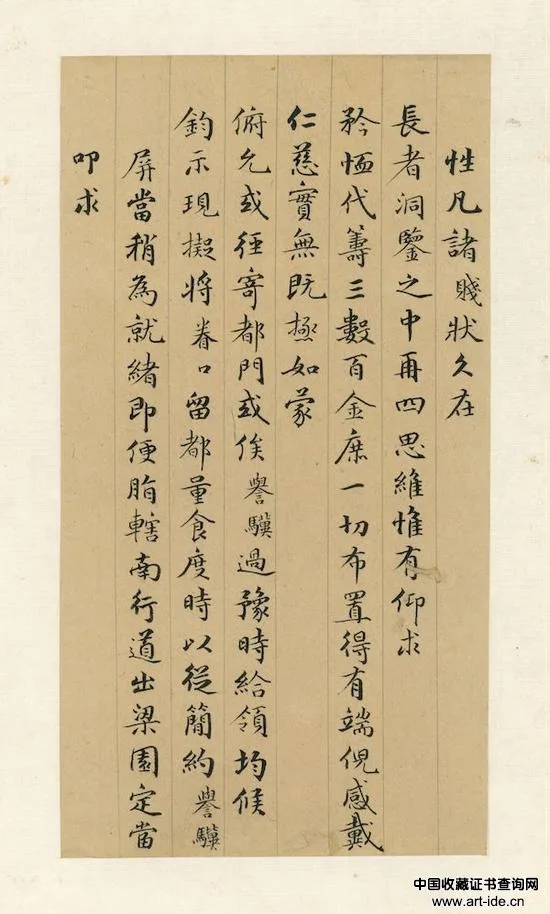 性凡諸賤狀久在
長者洞鑒之中再四思維惟有仰求
矜恤代籌三數百金庶一切布置得有端倪感戴
仁慈實無既極如蒙
俯允或徑寄都門或俟譽驥過豫時給領均候
鈞示現擬將眷口留都量食度時以從簡約譽驥
屏當稍為就緒即便脂轄南行道出梁園定當
叩求
中国收藏证书查询网
www.art-ide.cn